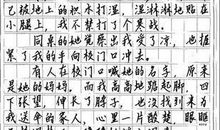 已被上的积水打湿，湿淋淋地贴在
小腿上，我不禁打了个寒战。
同桌的她觉察出我受了凉，也握
紧了我的手向校门口冲去。
有人在校门口喊她的名字，原来
是她的妈妈，而我高高地踮起脚，四
下张望，伸长了脖子，也没找到来为
我送伞的家人，心里一片酸楚，眼睛